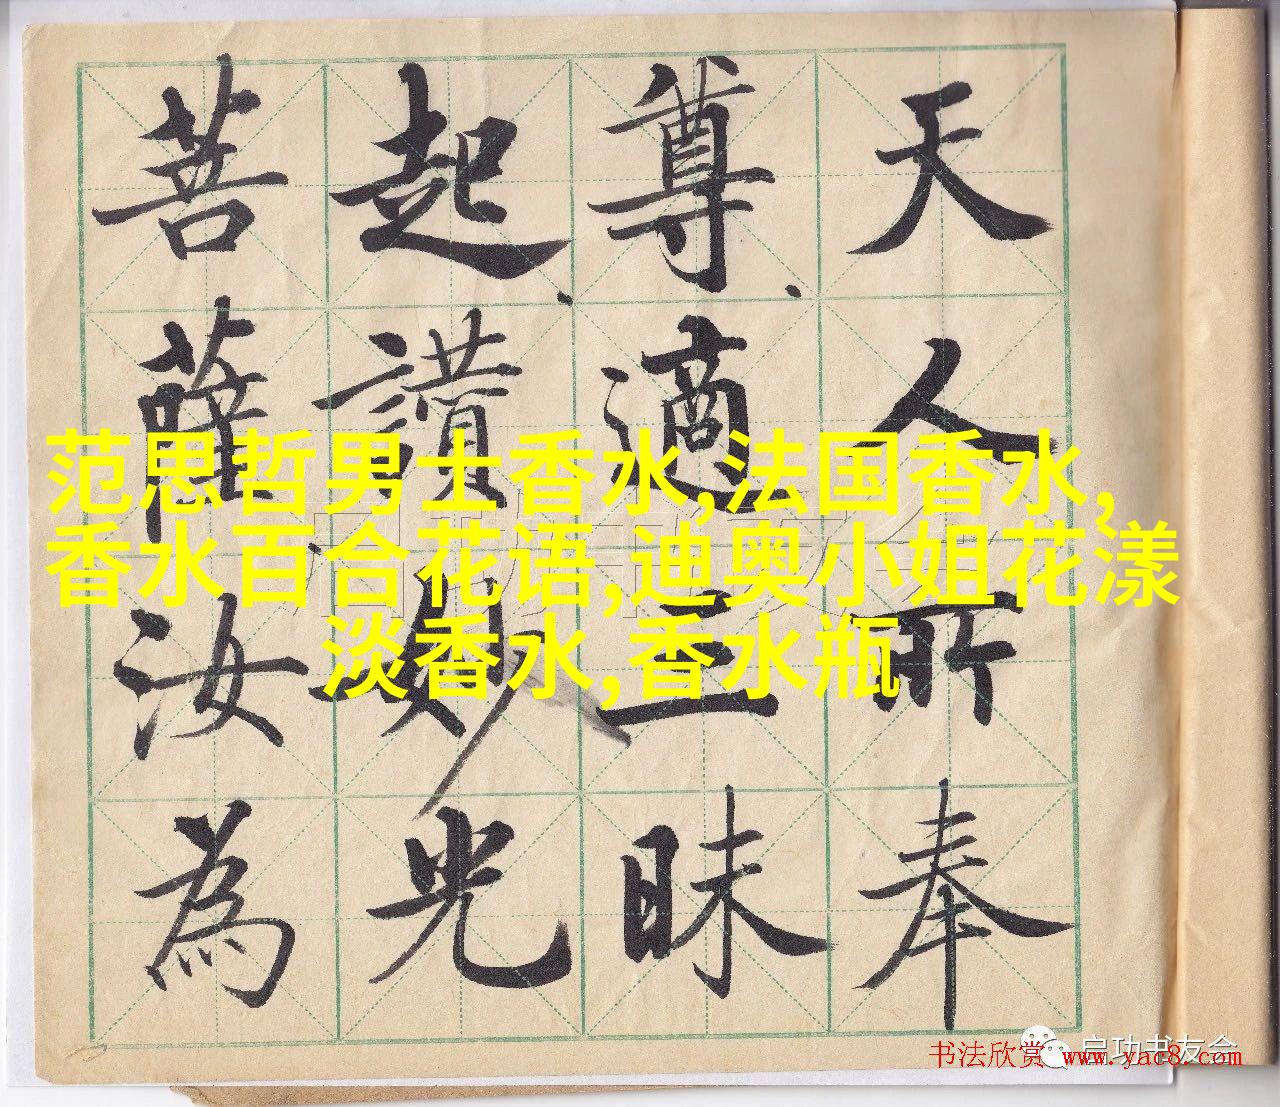 天人所奉
尊適三昧
起讚妙光
菩薩汝為
范思哲男士香水,法国香水,
香水百合花语,迪奥小姐花漾
淡香水,香水瓶
启功书友会
书法欣赏 www.yac8.com